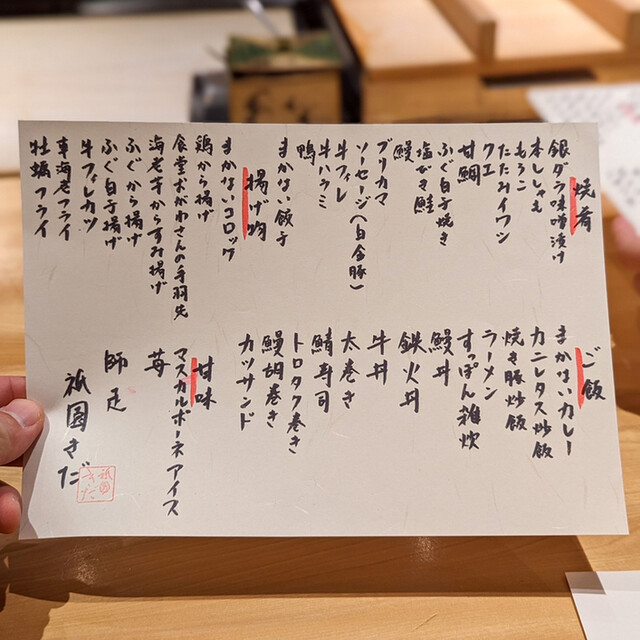 焼肴
銀ダラ味噌漬け
本ししゃも
もろこ
たたみイワシ
クエ
甘鯛
ふぐ白子焼き
塩びき鮭
鰻
ブリカマ
ソーセージ(白金豚)
牛フィレ
牛ハラミ
鴨
まかない餃子
揚げ物
まかないコロッケ
鶏から揚げ
食堂おがわさんの手羽先
海老芋からすみ揚げ
ふぐから揚げ
ふぐ白子揚げ
牛フィレカツ
車海老フライ
牡蠣フライ
ご飯
まかないカレー
カニレタス炒飯
焼き豚炒飯
ラーメン
すっぽん雑炊
鰻丼
鉄火丼
牛丼
太巻き
鯖寿司
トロタク巻き
鰻胡巻き
カツサンド
甘味
マスカルポーネアイス
苺
師走
祇園きだ
祇園
きだ